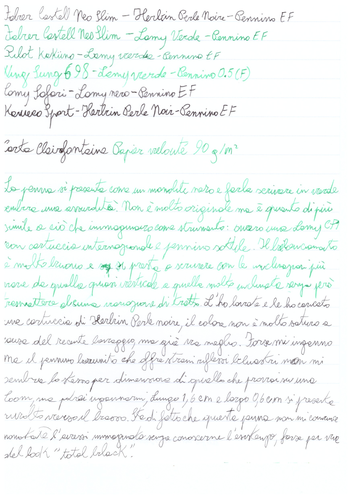 Faber Castell Neo Slim - Herbin Perle Noire - Pennino EF
Faber Castell Neo Slim - Lamy Verde - Pennino EF
Pilot Kakuno - Lamy verde - Pennino EF
Wing Sung 698 - Lamy verde - Pennino 0.5 (F)
Lamy Safari - Lamy nero - Pennino EF
Kaweco Sport - Herbin Perle Noir - Pennino EF
Carta Clairefontaine Papier velouté 90 g/m²
La penna si presenta come un monolite nero e farla scrivere in verde
sembra una assurdità. Non è molto originale ma è quanto di più
simile a ciò che immaginavo come strumento: ovvero una Lamy
con cartuccia internazionale e pennino sottile. Il bilanciamento
è molto buono e si presta a scrivere con le inclinazioni più
varie da quella quasi verticale a quella molto inclinata senza però
trasmettere alcuna variazione di tratto. L'ho lavata e le ho caricato
una cartuccia di Herbin Perle noire, il colore non è molto saturo a
causa del recente lavaggio, ma già va meglio. Forse mi inganno
ma il pennino brunito che offre strani riflessi bluastri non mi
sembra lo stesso per dimensione di quello che provai su una
Loom, ma potrei ingannarmi, lungo 1,6 cm e largo 0,6 cm si presenta
rivolto verso il basso. Sta di fatto che questa penna non mi convince
nonostante l'avessi immaginata senza conoscerne l'esistenza, forse per via
del look "total black".